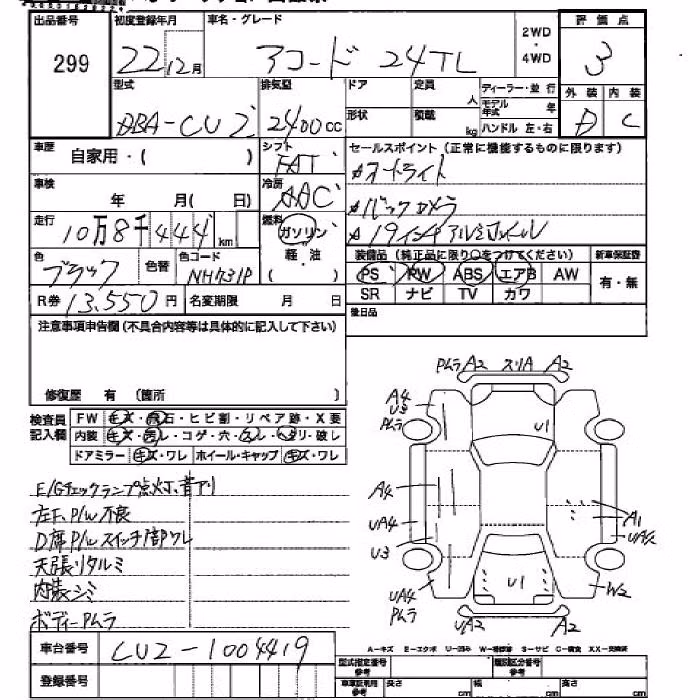 出品番号 初度登録年月 車名・グレード 評価点
299 22年12月 アコード 24TL 2WD・4WD 3
型式 排気量 ドア 定員 人 ディーラー・並行 外装 内装
DBA-CU2 2400cc 形状 積載 kg モデル年式 年 ハンドル 左・右 D C
車歴 自家用・( ) シフト FAT セールスポイント(正常に機能するものに限ります)
オートライト
車検 年 月( 日) 冷房 AAC バックカメラ
走行 10万8千444km 燃料 ガソリン・軽・油( ) 19インチアルミホイル
色 ブラック 色替 色コード NH731P 装備品(純正品に限り○をつけてください) 新車保証書
PS PW ABS エアB AW 有・無
R券 13,550円 名変期限 月 日 SR ナビ TV カワ
注意事項申告欄(不具合内容等は具体的に記入して下さい) 後日品
修復歴 有 〔箇所 〕
検査員記入欄 FW キズ・飛石・ヒビ割・リペア跡・X要
内装 キズ・汚レ・コゲ・穴・スレ・ヘタリ・破レ
ドアミラー キズ・ワレ ホイール・キャップ キズ・ワレ
E/Gチェックランプ点灯、音アリ
左F、P/W不良
D席P/Wスイッチ1部ワレ
天張リタルミ
内装シミ
ボディーPムラ
Pムラ A2 スリA A2
A4
U3
Pムラ
U1
A4
UA4
U3
A1
UA2
UA4
Pムラ
U1
W2
UA2 A2
車台番号 CU2-1004419
登録番号
A-キズ E-エクボ U-凹み W-補修跡 S-サビ C-腐食 XX-交換済
型式指定番号 参考 類別区分番号 参考
車車証明用 参考 長さ cm 幅 cm 高さ cm